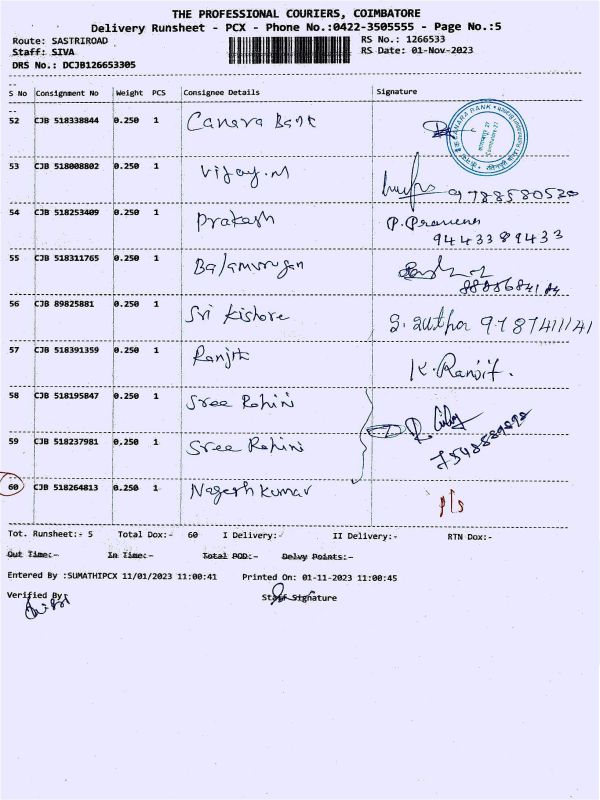 THE PROFESSIONAL COURIERS, COIMBATORE
Delivery Runsheet - PCX - Phone No.:0422-3505555 - Page No.:5
Route: SASTRIROAD RS No.: 1266533
Staff: SIVA RS Date: 01-Nov-2023
DRS No.: DCJB126653305
S No Consignment No Weight PCS Consignee Details Signature
52 CJB 518338844 0.250 1 Canara Bank CANARA BANK
53 CJB 518008802 0.250 1 Vijay.M 9788580520
54 CJB 518253409 0.250 1 Prakash P. Praveena
9443389433
55 CJB 518311765 0.250 1 Balamurugan
56 CJB 89825881 0.250 1 Sri Kishore 9787411141
57 CJB 518391359 0.250 1 Ranjith K. Ranjit.
58 CJB 518195847 0.250 1 Sree Rohini
59 CJB 518237981 0.250 1 Sree Rohini
60 CJB 518264813 0.250 1 Nagesh Kumar P/s
Tot. Runsheet:- 5 Total Dox:- 60 I Delivery:- II Delivery:- RTN Dox:-
Out Time:- In Time:- Total POD:- Delvy Points:-
Entered By :SUMATHIPCX 11/01/2023 11:00:41 Printed On: 01-11-2023 11:00:45
Verified By: Staff Signature